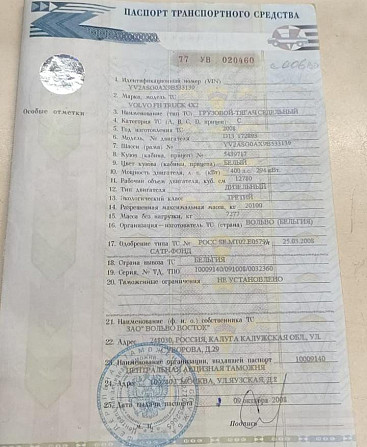 ПАСПОРТ ТРАНСПОРТНОГО СРЕДСТВА
77 УВ 020460
Особые отметки
1. Идентификационный номер (VIN)
2. Марка, модель ТС
VOLVO FH TRUCK 4X2
3. Наименование (тип ТС) ГРУЗОВОЙ-ТЯГАЧ СЕДЕЛЬНЫЙ
4. Категория ТС (А, В, С, D, прицеп)
5. Год изготовления ТС 2008
6. Модель, № двигателя D13
7. Шасси (рама) №
8. Кузов (кабина, прицеп) №
9. Цвет кузова (кабины, прицепа) БЕЛЫЙ
10. Мощность двигателя, л. с. (кВт) 400 л.с. 294 кВт.
11. Рабочий объем двигателя, куб. см 12780
12. Тип двигателя ДИЗЕЛЬНЫЙ
13. Экологический класс ТРЕТИЙ
14. Разрешенная максимальная масса, кг 20100
15. Масса без нагрузки, кг 7277
16. Организация—изготовитель ТС (страна) ВОЛЬВО (БЕЛЬГИЯ)
17. Одобрение типа ТС № РОСС 25.03.2008
САТР-ФОНД
18. Страна вывоза ТС БЕЛЬГИЯ
19. Серия, № ТД, ТПО 10009140/091008/0032360
20. Таможенные ограничения НЕ УСТАНОВЛЕНО
21. Наименование (ф. и. о.) собственника ТС
ЗАО "ВОЛЬВО ВОСТОК"
22. Адрес РОССИЯ, КАЛУГА КАЛУЖСКАЯ ОБЛ., УЛ.
СУВОРОВА, Д.29
23. Наименование организации, выдавшей паспорт 10009140
ЦЕНТРАЛЬНАЯ АКЦИЗНАЯ ТАМОЖНЯ
24. Адрес Г.МОСКВА, УЛ.ЯУЗСКАЯ, Д.8
25. Дата выдачи паспорта 09 октября 2008
М. П. Подпись